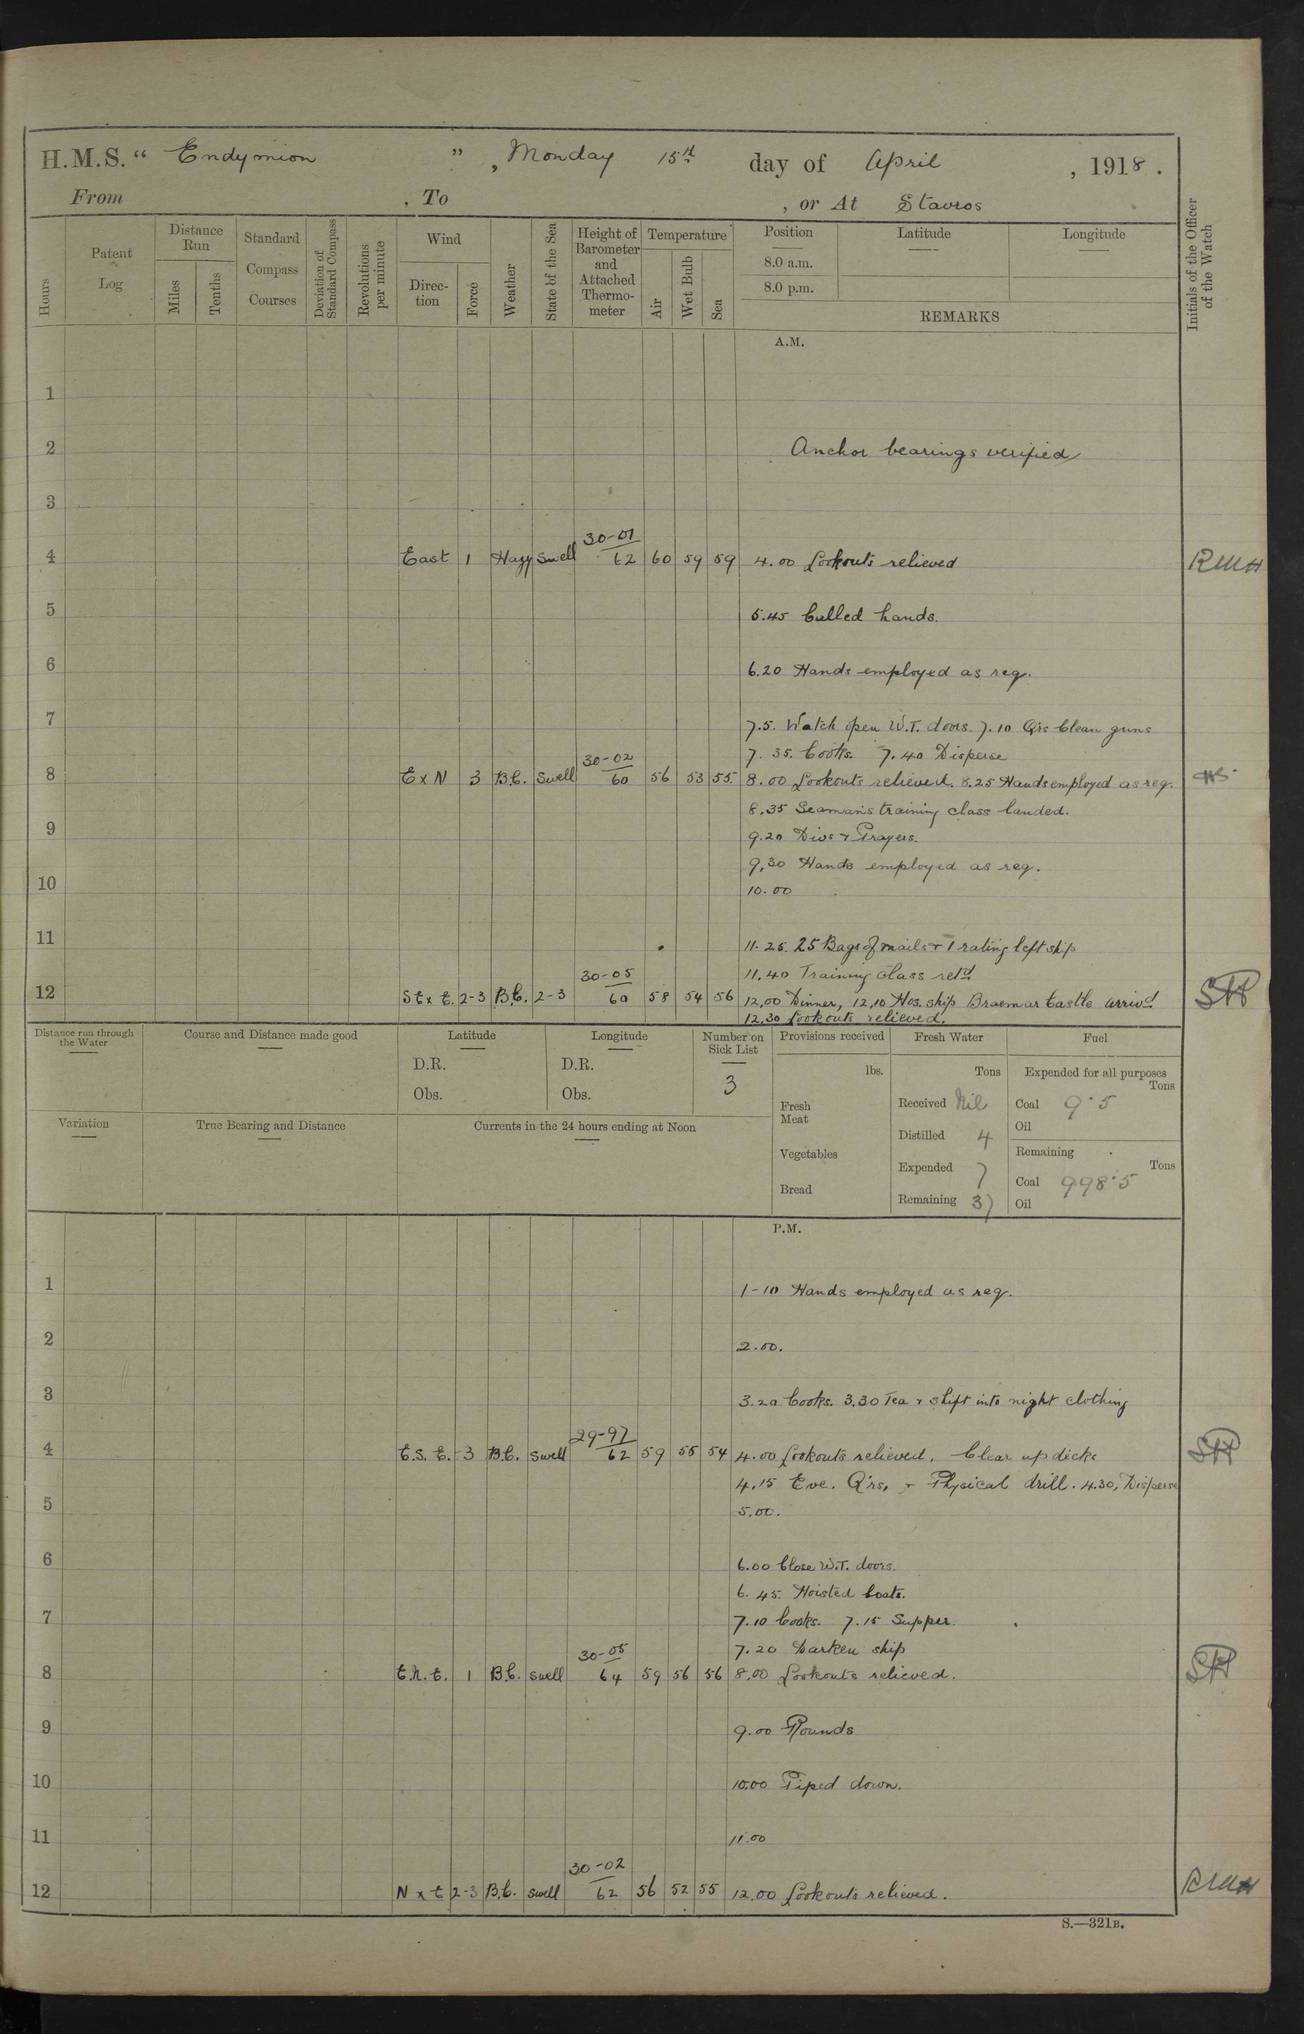 H.M.S. " Endymion " , Monday 15th day of April , 1918 .
From , To , or At Stavros
Hours
Patent Log
Distance Run
Miles
Tenths
Standard Compass Courses
Deviation of Standard Compass
Revolutions per minute
Wind
Direction
Force
Weather
State of the Sea
Height of Barometer and Attached Thermometer
Temperature
Air
Wet Bulb
Sea
Position
8.0 a.m.
8.0 p.m.
Latitude
Longitude
REMARKS
Initials of the Officer of the Watch
A.M.
1
2 Anchor bearings verified
3
4 East 1 Hazy Swell 30-01 62 60 59 59 4.00 Lookouts relieved
5 5.45 Called hands.
6 6.20 Hands employed as req.
7 7.5. Watch open W.T. doors. 7.10 Qrs Clean guns
7.35. Cooks. 7.40 Disperse
8 E x N 3 B.C. Swell 30-02 60 56 53 55 8.00 Lookouts relieved. 8.25 Hands employed as req.
8.35 Seamans training class landed.
9 9.20 Divs & Prayers.
9.30 Hands employed as req.
10 10.00
11 11.25. 25 Bags of mails & 1 rating left ship
11.40 Training class retd.
12 St x E. 2-3 B.C. 2-3 30-05 60 58 54 56 12.00 Dinner, 12.10 Hos. ship Braemar Castle arrivd
12.30 Lookouts relieved.
Distance run through the Water
Course and Distance made good
Latitude
D.R.
Obs.
Longitude
D.R.
Obs.
Number on Sick List
3
Provisions received
lbs.
Fresh Meat
Vegetables
Bread
Fresh Water
Tons
Received Nil
Distilled 4
Expended 7
Remaining 37
Fuel
Expended for all purposes
Tons
Coal 9.5
Oil
Remaining
Tons
Coal 998.5
Oil
Variation
True Bearing and Distance
Currents in the 24 hours ending at Noon
P.M.
1 1-10 Hands employed as req.
2 2.00.
3 3.20 Cooks. 3.30 Tea & shift into night clothing
4 E.S.E. 3 B.C. Swell 29-97 62 59 55 54 4.00 Lookouts relieved. Clear up decks
4.15 Eve. Qrs. & Physical drill. 4.30, Disperse
5 5.00.
6 6.00 Close W.T. doors.
6.45. Hoisted boats.
7 7.10 Cooks. 7.15 Supper.
7.20 Darken ship
8 E.N.E. 1 B.C. Swell 30-05 64 59 56 56 8.00 Lookouts relieved.
9 9.00 Rounds
10 10.00 Piped down.
11 11.00
12 N x E 2-3 B.C. Swell 30-02 62 56 52 55 12.00 Lookouts relieved.
S.—321B.